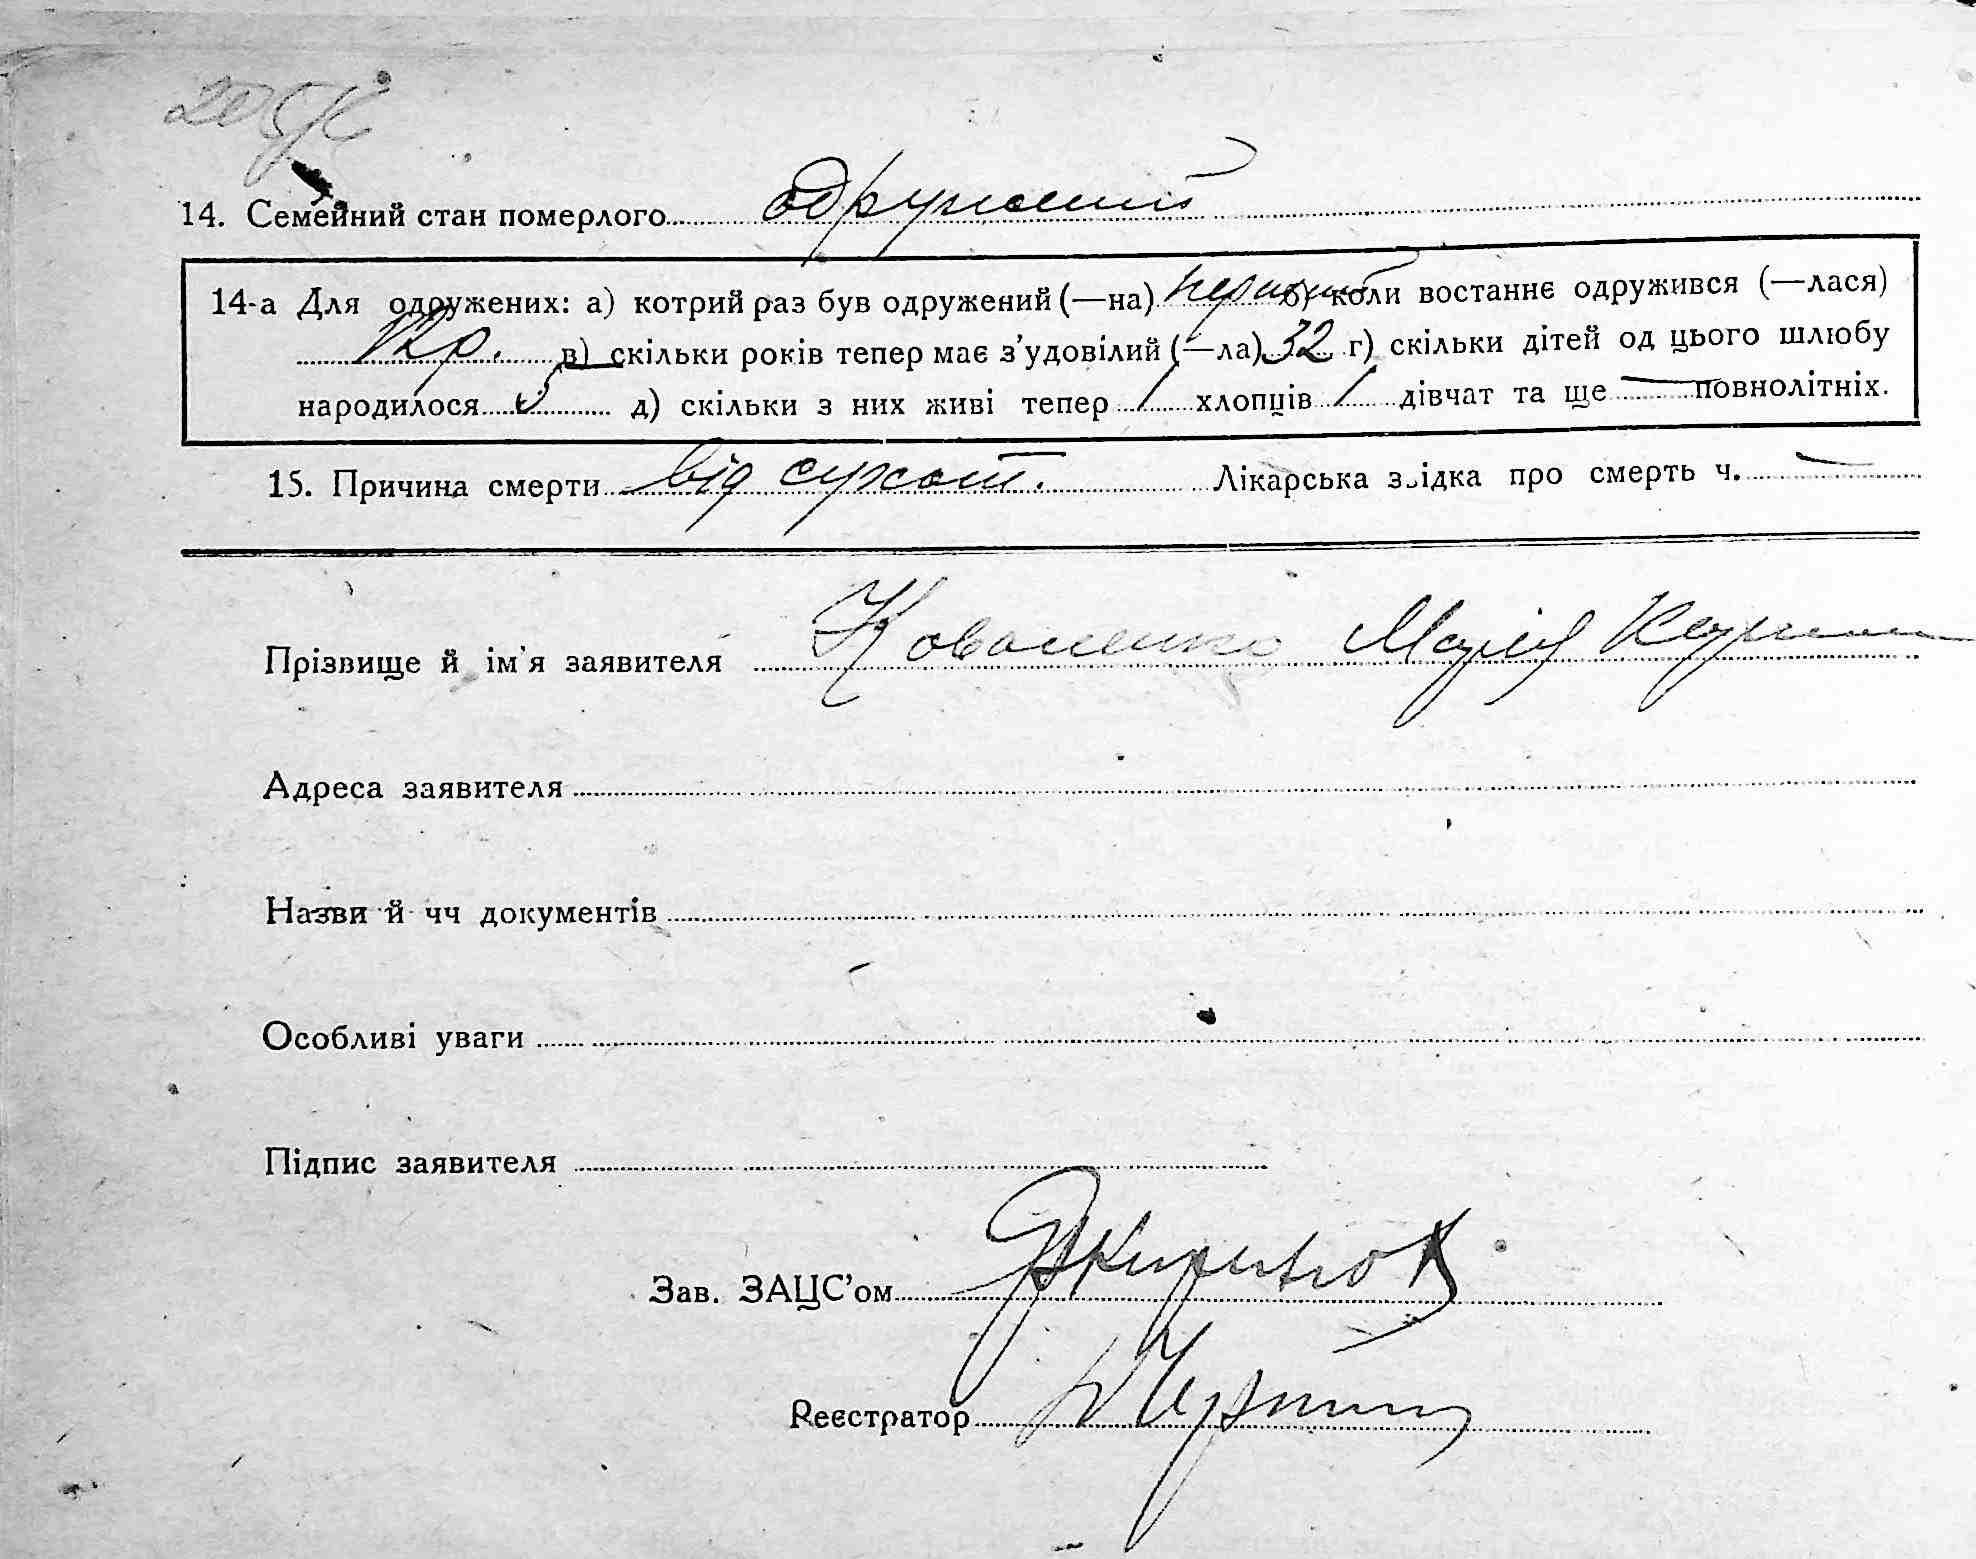 14. Семейний стан померлого одружений
14-а Для одружених: а) котрий раз був одружений (—на) перший б) коли востаннє одружився (—лася)
12 р. в) скільки років тепер має з’удовілий (—ла) 32 г) скільки дітей од цього шлюбу
народилося 5 д) скільки з них живі тепер 1 хлопців 1 дівчат та ще — повнолітніх.
15. Причина смерти від сухот. Лікарська звідка про смерть ч. —
Прізвище й ім'я заявителя Коваленко Марія
Адреса заявителя
Назви й чч документів
Особливі уваги
Підпис заявителя
Зав. ЗАЦС’ом
Реєстратор